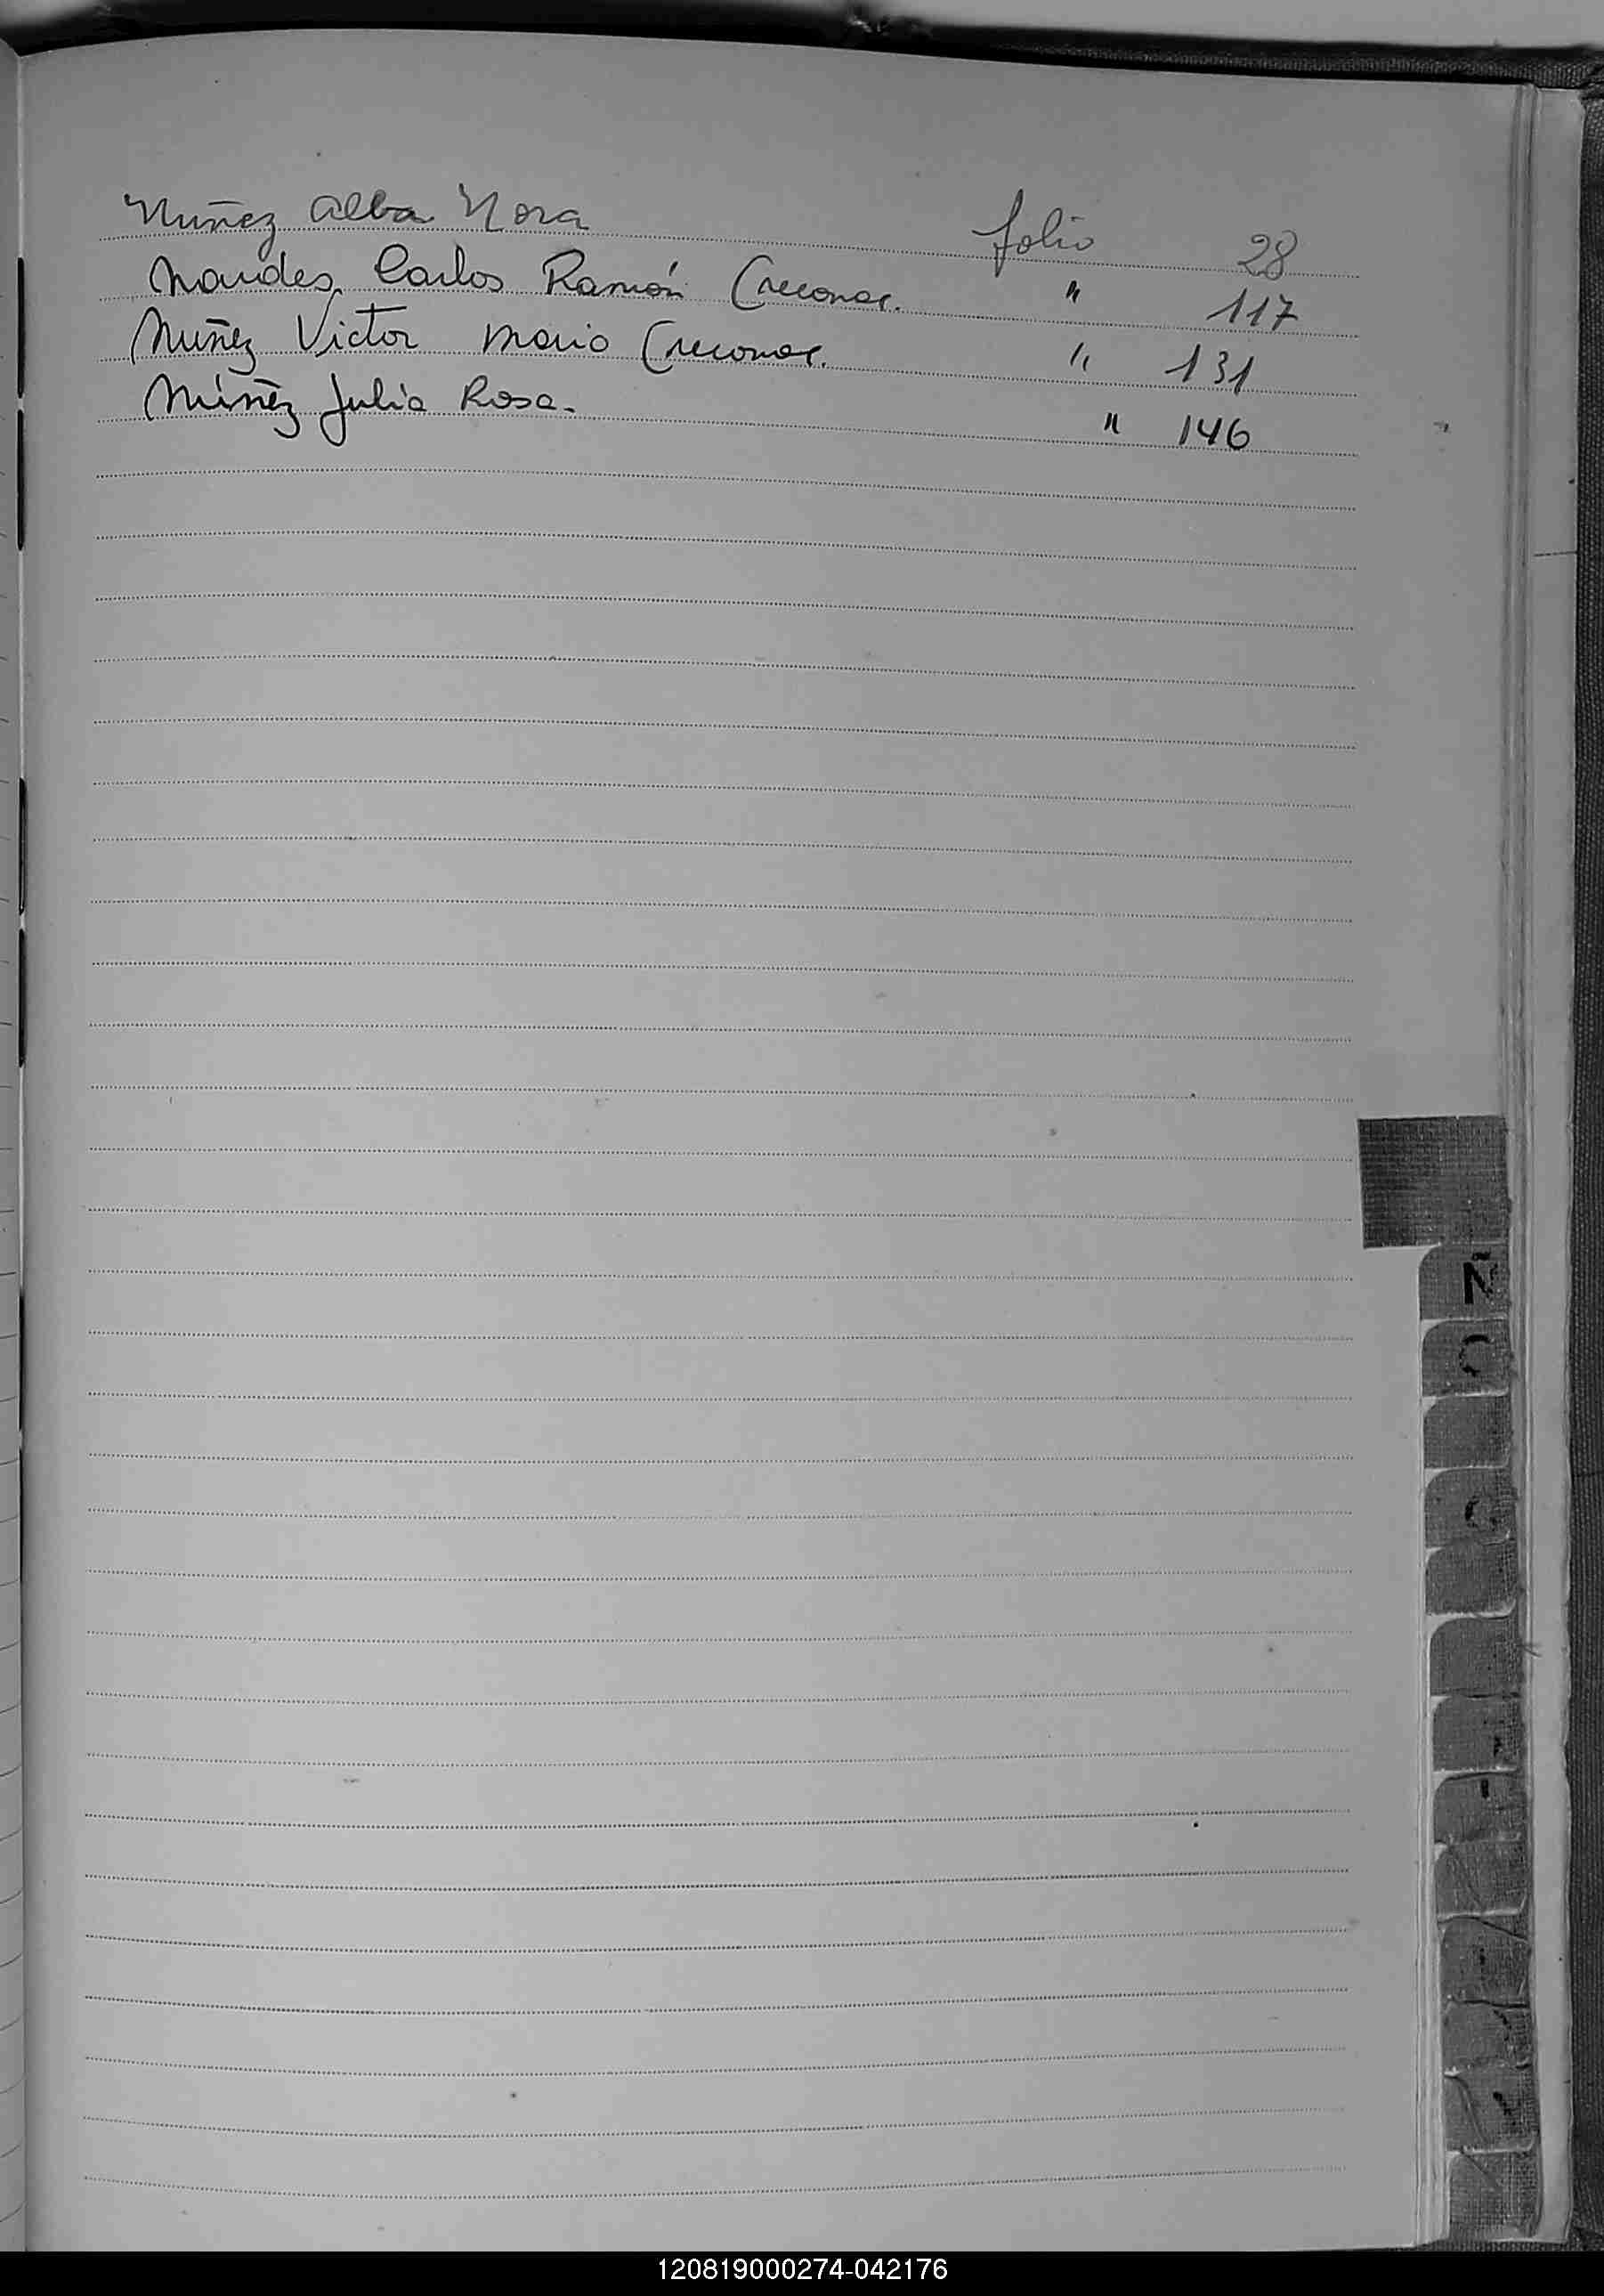 Nuñez Alba Nora folio 28
Naudes Carlos Ramón (reconoc. " 117
Nuñez Victor Mario (reconoc. " 131
Núñez Julia Rosa. " 146
Ñ
120819000274-042176